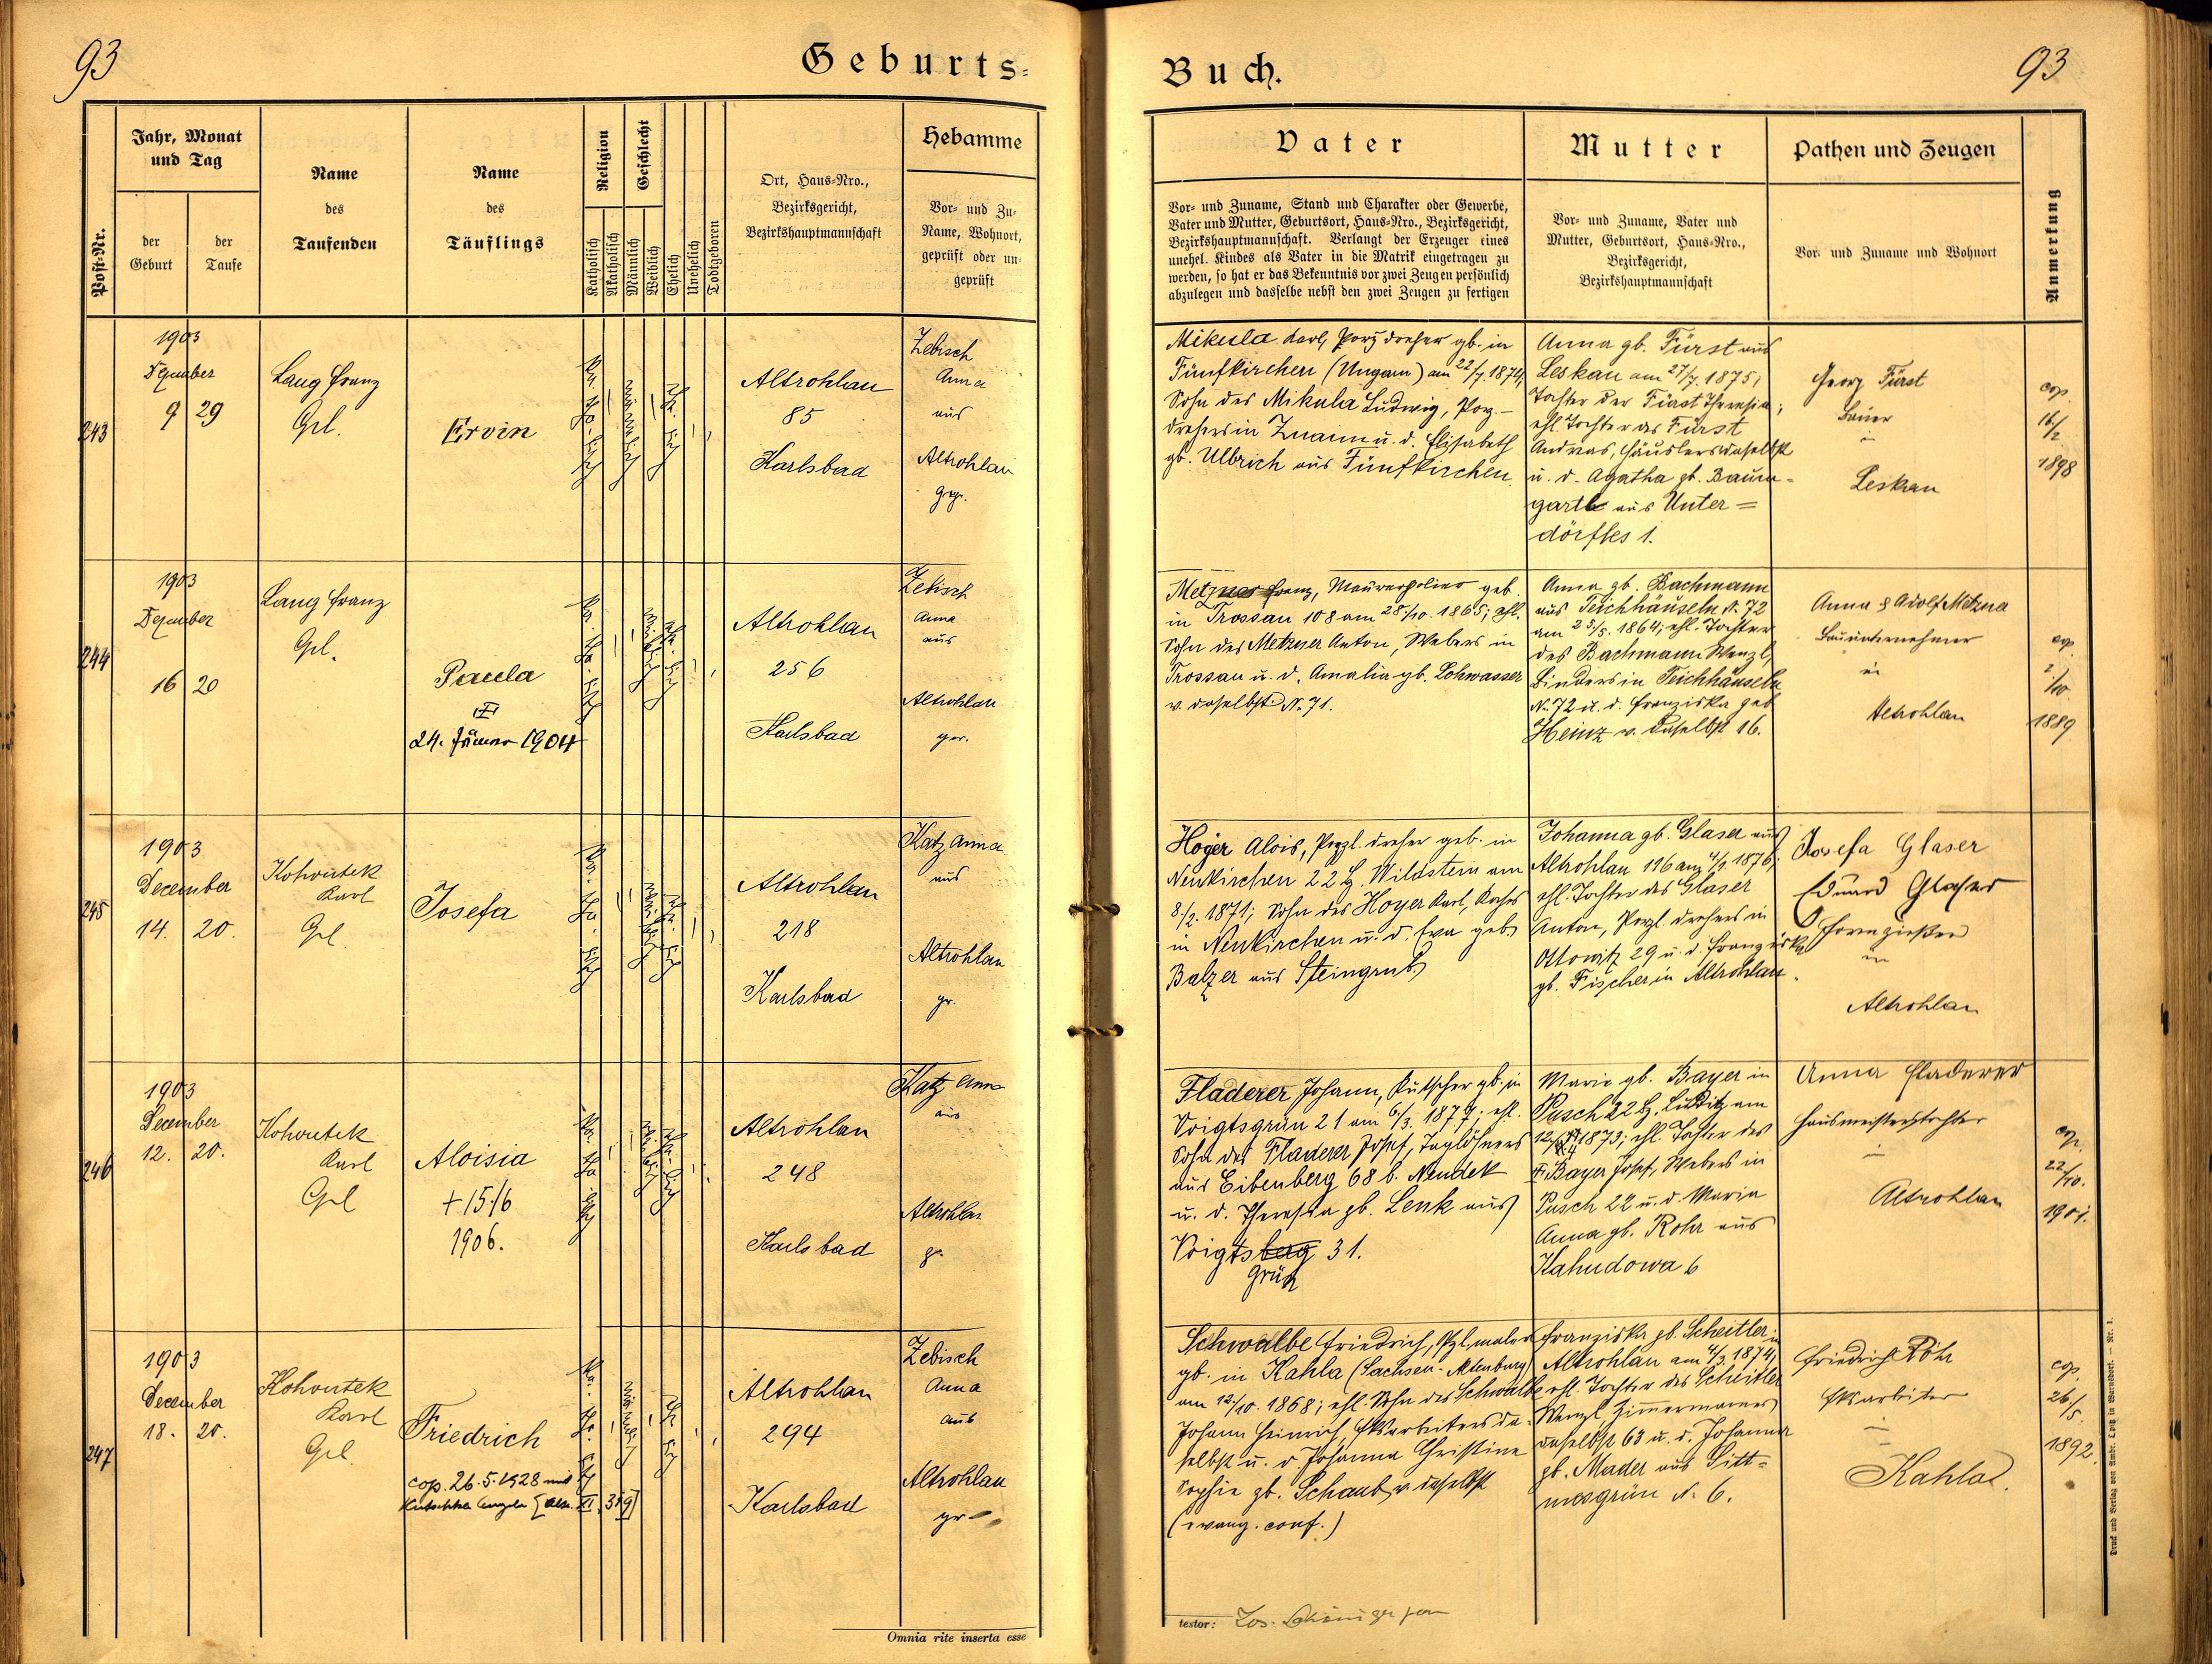 93
Geburts-
Jahr, Monat
und Tag
der
Geburt
der
Taufe
Post-Nr.
Name
des
Taufenden
Name
des
Täuflings
Religion
Geschlecht
Katholisch
Akatholisch
Männlich
Weiblich
Ehelich
Unehelich
Todtgeboren
Ort, Haus-Nro.,
Bezirksgericht,
Bezirkshauptmannschaft
Hebamme
Vor- und Zu-
Name, Wohnort,
geprüft oder un-
geprüft
243
1903
Dezember
9 29
Lang Franz
Grl.
Ervin
Altrohlau
85
Karlsbad
Zebisch
Anna
aus
Altrohlau
gepr.
244
1903
Dezember
16 20
Lang Franz
Grl.
Paula
24. Jänner 1904
Altrohlau
256
Karlsbad
Zebisch
Anna
aus
Altrohlau
gepr.
245
1903
December
14. 20.
Kohoutek
Karl
Grl.
Josefa
Altrohlau
218
Karlsbad
Katz Anna
aus
Altrohlau
gr.
246
1903
December
12. 20.
Kohoutek
Karl
Grl
Aloisia
+ 15./6
1906.
Altrohlau
248
Karlsbad
Katz Anna
aus
Altrohlau
g.
247
1903
December
18. 20.
Kohoutek
Karl
Grl.
Friedrich
cop. 26.5.1928 mit
Altrohlau
294
Karlsbad
Zebisch
Anna
aus
Altrohlau
gr
Omnia rite inserta esse
Buch.
93
Vater
Vor- und Zuname, Stand und Charakter oder Gewerbe,
Vater und Mutter, Geburtsort, Haus-Nro., Bezirksgericht,
Bezirkshauptmannschaft. Verlangt der Erzeuger eines
unehel. Kindes als Vater in die Matrik eingetragen zu
werden, so hat er das Bekenntnis vor zwei Zeugen persönlich
abzulegen und dasselbe nebst den zwei Zeugen zu fertigen
Mutter
Vor- und Zuname, Vater und
Mutter, Geburtsort, Haus-Nro.,
Bezirksgericht,
Bezirkshauptmannschaft
Pathen und Zeugen
Vor- und Zuname und Wohnort
Anmerkung
Mikula Karl, Porz. dreher gb. in
Fünfkirchen (Ungarn) am 22/7. 1874,
Sohn des Mikula Ludwig, Porz.-
drehers in Znaim u. d. Elisabeth
gb. Ulbrich aus Fünfkirchen
Anna gb. Fürst aus
Leskau am 27/7. 1875,
Tochter der Fürst Theresia;
ehl. Tochter des Fürst
Andreas, Häuslers daselbst
u. d. Agatha gb. Baum-
gartl aus Unter-
dörfles 1.
Georg Fürst
Bauer
in
Leskau
cop.
16/2
1898
Metzner Franz, Maurerpolier geb.
in Trossau 108 am 28./10. 1865; ehl.
Sohn des Metzner Anton, Webers in
Trossau u. d. Amalia gb. Lohwasser
v. daselbst N. 71.
Anna gb. Bachmann
aus Teichhäuseln N. 72
am 25/5. 1864; ehl. Tochter
des Bachmann Wenzl,
Binders in Teichhäuseln
N. 72 u. d. Franziska geb
Heinz v. daselbst 16.
Anna & Adolf Metzner
Bauunternehmer
in
Altrohlau
cop
2./10
1889
Hoyer Alois, Porzl. dreher geb. in
Neukirchen 22 b. Wildstein am
8./2. 1871; Sohn des Hoyer Karl,
in Neukirchen u. d. Eva geb.
Balzer aus Steingrub
Johanna gb. Glaser aus
Altrohlau 116 am 1876;
ehl. Tochter des Glaser
Anton, Porzl. drehers in
Ottowitz 29 u. d. Franziska
gb. Fischer in Altrohlau.
Josefa Glaser
Eduard Glaser
Formgießer
in
Altrohlau
Fladerer Johann, Kutscher gb. in
Voigtsgrün 21 am 6/3. 1877; ehl.
Sohn des Fladerer Josef, Taglöhners
aus Eibenberg 68 b. Neudek
u. d. Theresia gb. Lenk aus
Voigtsberg 31.
Grün
Marie gb. Bayer in
Pusch 22 b. Luditz am
1873; ehl. Tochter des
Bayer Josef, Webers in
Pusch 22 u. d. Maria
Anna gb. Rohr aus
Kahudowa 6
Anna Fladerer
Hausmeisterstochter
in
Altrohlau
cop.
22/10.
1901.
Schwalbe Friedrich, Pzl. maler
gb. in Kahla (Sachsen-Altenburg)
am 12/10. 1868; ehl. Sohn des Schwalbe
Johann Heinrich, Fksarbeiters da-
selbst u. d Johanna Christine
Sophie gb. Schaub v. daselbst
(evang. conf.)
Franziska gb. Scheitler in
Altrohlau am 4/3. 1874,
ehl. Tochter des Scheitler
Wenzl, Zimmermanns
daselbst 63 u. d. Johanna
gb. Mader aus Sitt-
mesgrün N. 6.
Friedrich Röhr
Fksarbeiter
in
Kahla
cop.
26/5.
1892.
testor:
Druck und Verlag von Ambr. Opitz in Warnsdorf. — Nr. 1.